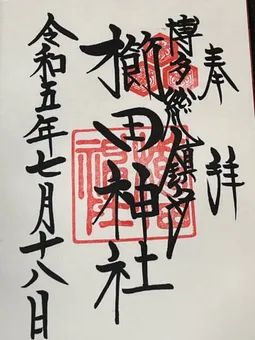 奉拝
博多総鎮守
櫛田神社
令和五年七月十八日